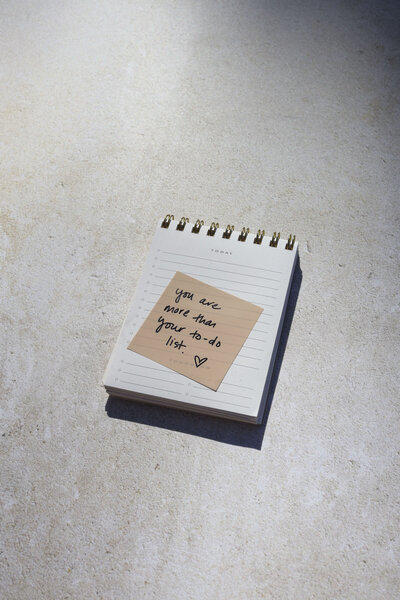 TODAY
you are
more than
your to-do
list.